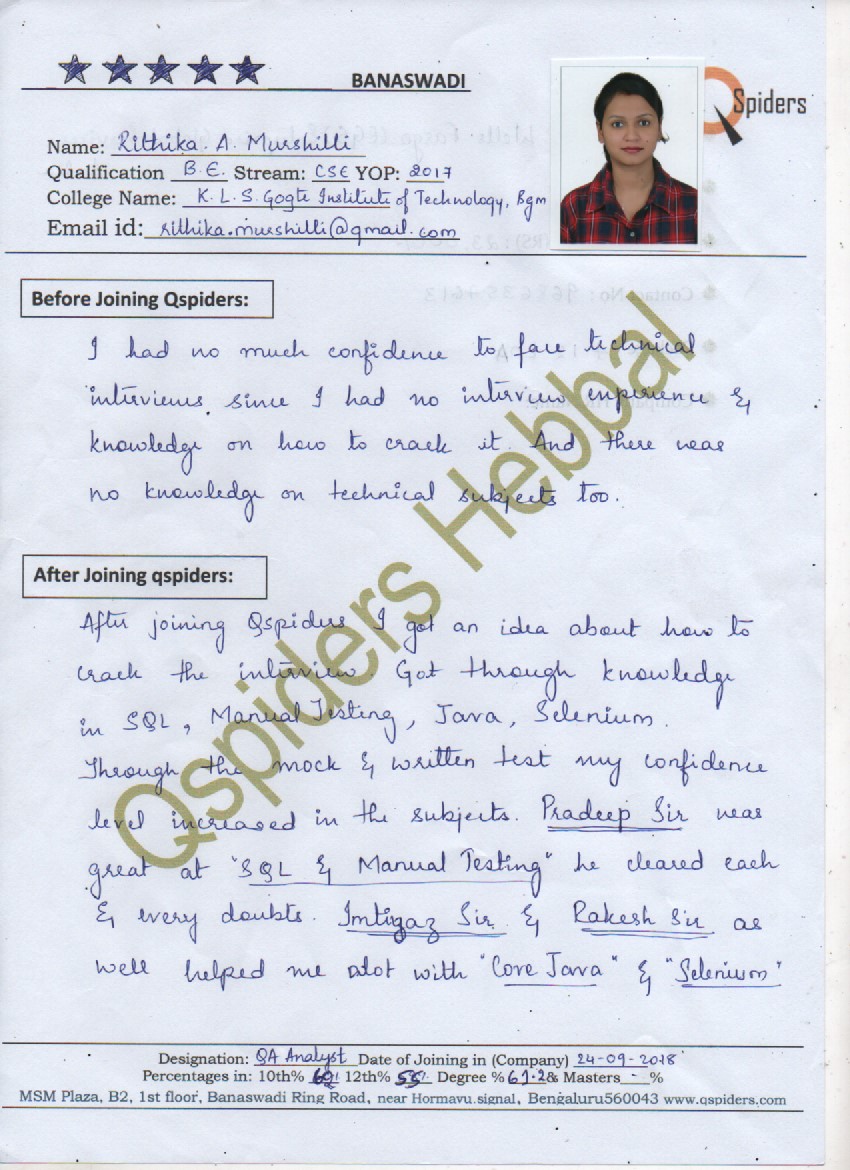 BANASWADI
Spiders
Name: Rithika. A. Murshilli
Qualification B.E. Stream: CSE YOP: 2017
College Name: K. L. S. Gogte Institute of Technology, Bgm
Email id: rithika.murshilli@gmail.com
Before Joining Qspiders:
I had no much confidence to face technical
interviews since I had no interview experience &
knowledge on how to crack it. And there was
no knowledge on technical subjects too.
After Joining qspiders:
After joining Qspiders I got an idea about how to
crack the interview. Got through knowledge
in SQL, Manual Testing, Java, Selenium.
Through the mock & written test my confidence
level increased in the subjects. Pradeep Sir was
great at "SQL & Manual Testing" he cleared each
& every doubts. Imtiyaz Sir & Rakesh Sir as
well helped me alot with "Core Java" & "Selenium"
Qspiders Hebbal
Designation: QA Analyst Date of Joining in (Company) 24-09-2018
Percentages in: 10th% 12th% 55% Degree % 61.28 Masters - %
MSM Plaza, B2, 1st floor, Banaswadi Ring Road, near Hormavu.signal, Bengaluru560043 www.qspiders.com